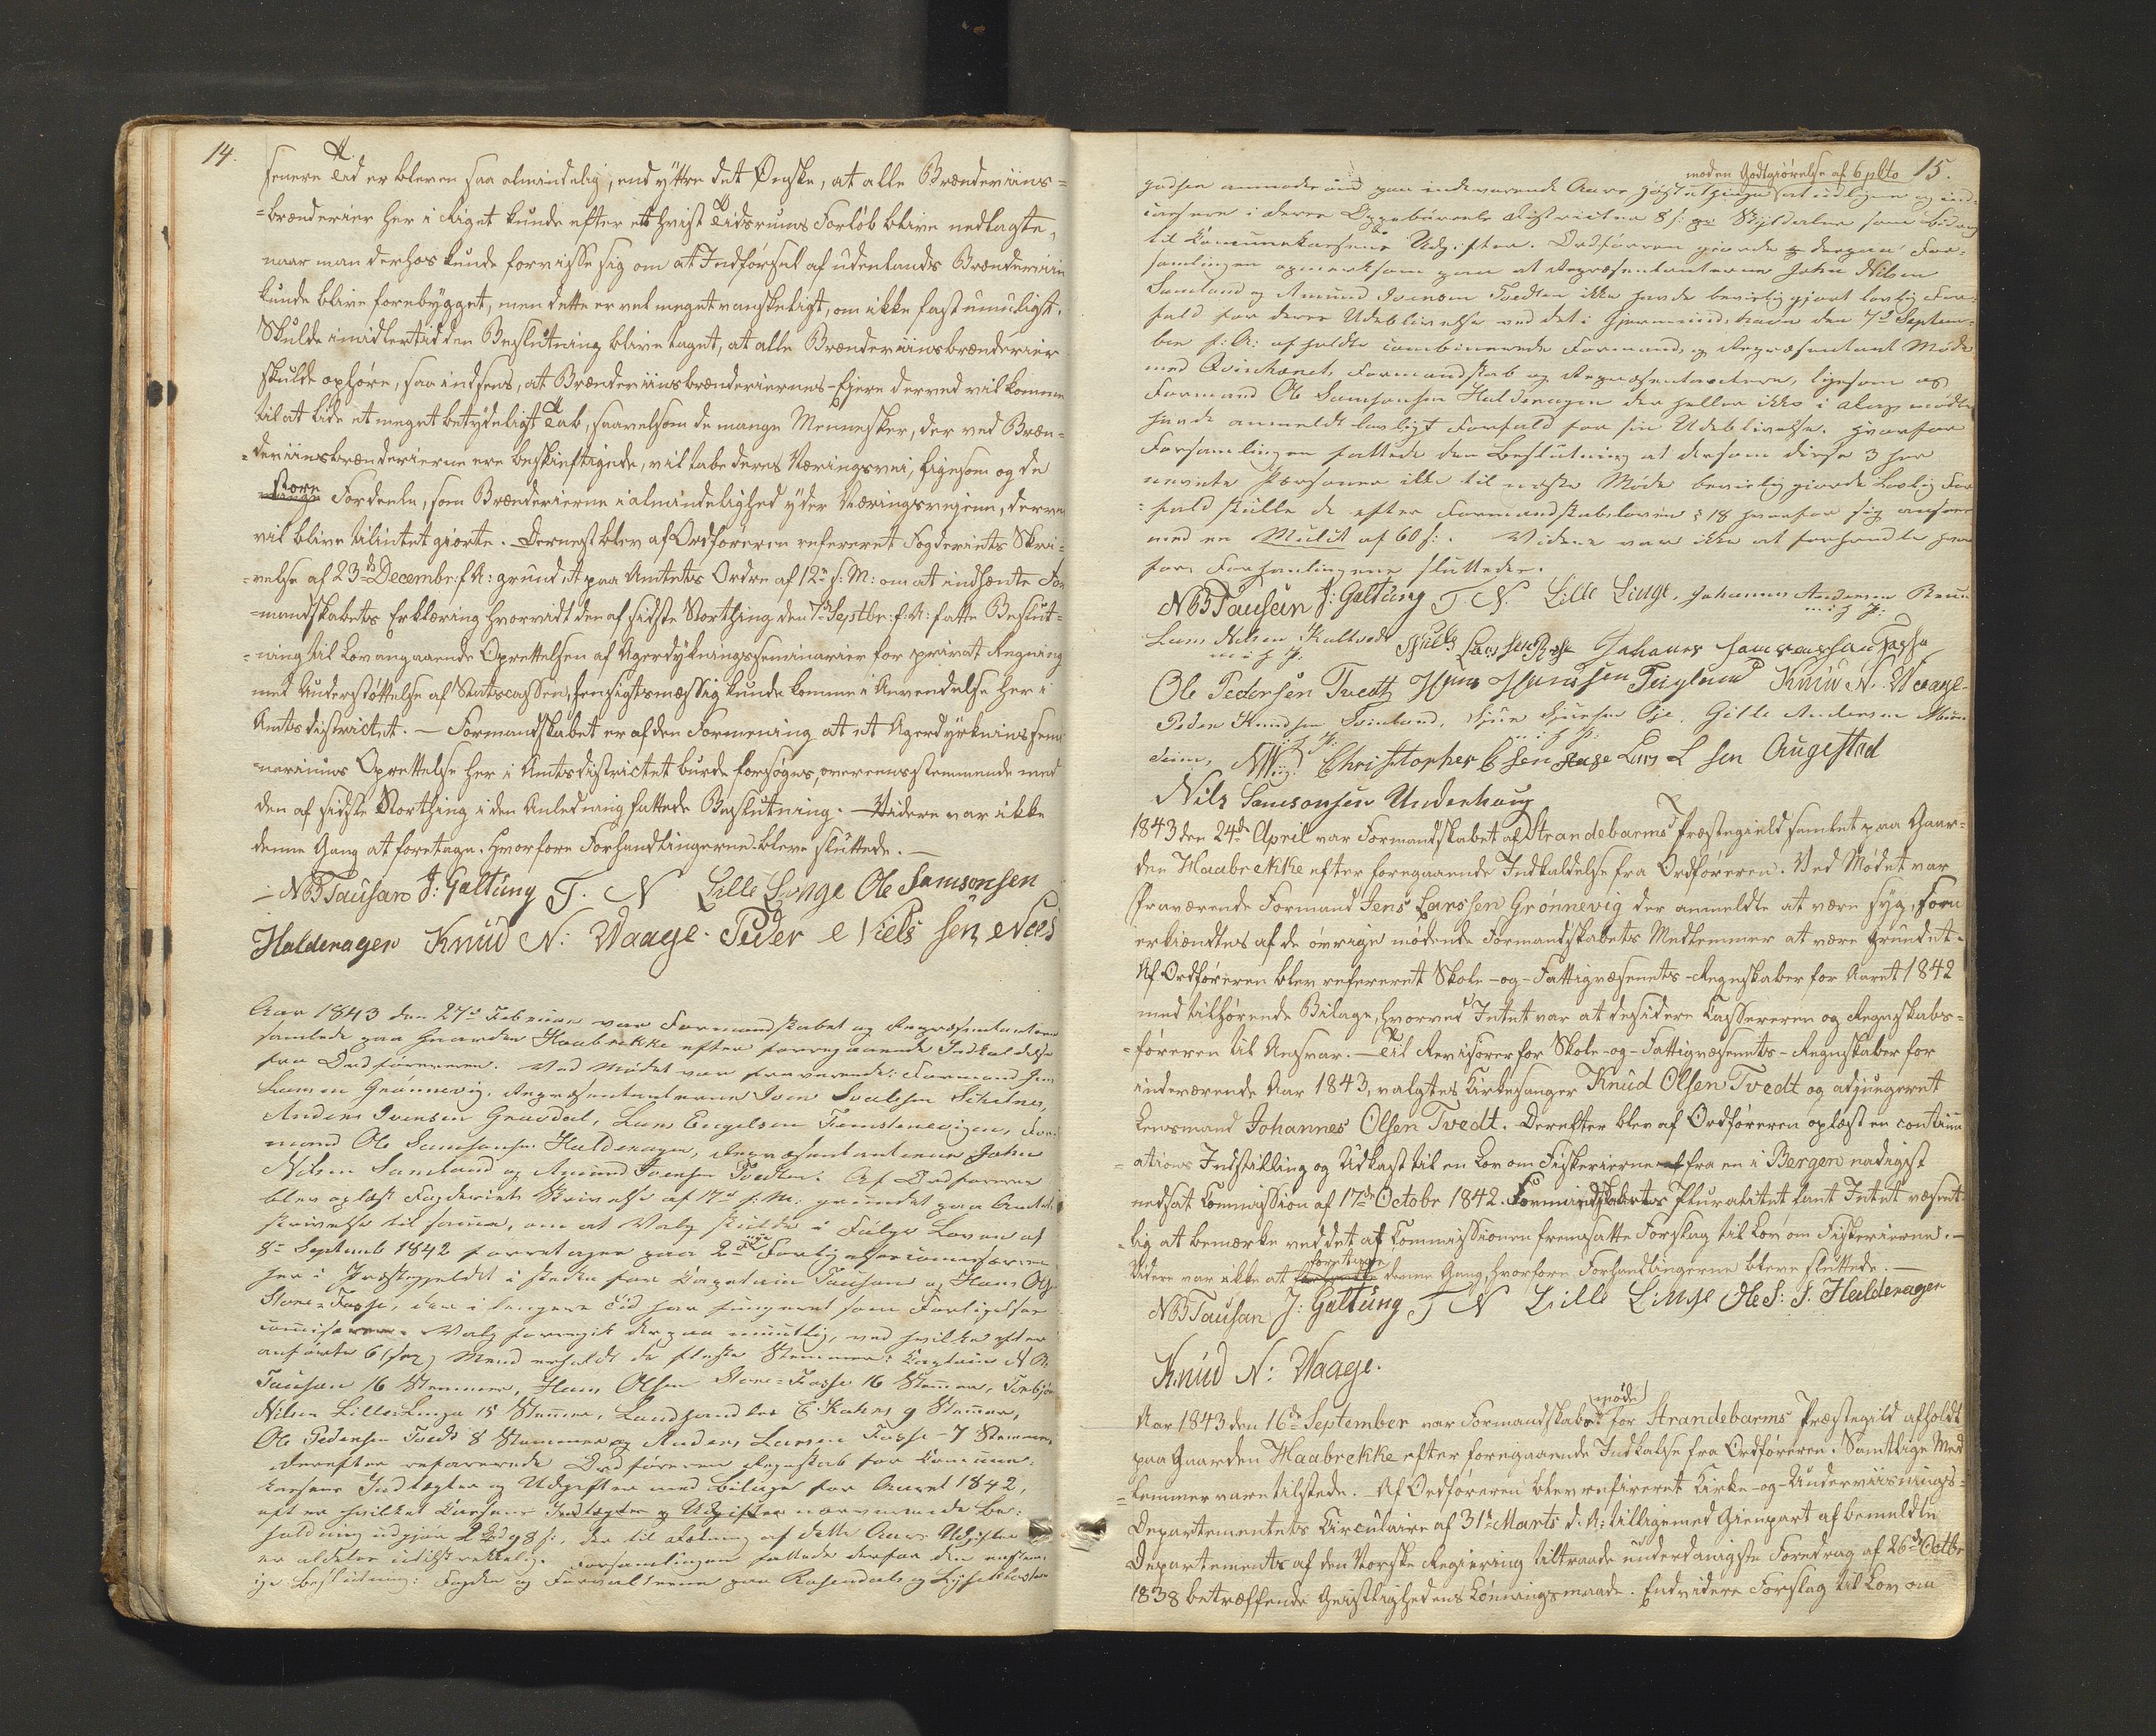 14.
senere Tid er bleven saa almindelig, end yttre det Ønske, at alle Brændeviins-
-brænderier her i Riget kunde efter et hvist Tidsrums Forløb blive nedlagte,
naar man derhos kunde forvisse sig om at Indførsel af udenlands Brændeviin
kunde blive forebygget, men dette er vel meget vanskeligt, om ikke fast umuligt.
Skulde imidlertid den Beslutning blive taget, at alle Brændeviinsbrænderier
skulde ophøre, saa indsees, at Brændeviinsbrænderiernes-Ejere derved vil komme
til at lide et meget betydeligt Tab, saavelsom de mange Mennesker, der ved Bræn-
-deviinsbrænderierne ere beskjæftigede, vil tabe deres Næringsvei, ligesom og de
store
Fordeele, som Brænderierne i almindelighed yder Næringsveiene, derved
vil blive tilintet giorte. Dernæst blev af Ordføreren refereret Fogderiets Skri-
-velse af 23de Decembr: f. A: grundet paa Amtets Ordre af 12te s: M: om at indhente For
-mandskabets Erklæring hvorvidt den af sidste Storthing den 7de Septbr: f: A: fatte Beslut-
-ning til Lov angaaende Oprettelsen af Agerdyrkningsseminarier for privat Regning
med Understøttelse af Statscassen, hensigtsmæssig kunde komme i Anvendelse her i
Amtsdistrictet. — Formandskabet er af den Formening at et Agerdyrknins semi
-nariums Oprettelse her i Amtsdistrictet burde forsøges, overeensstemmende med
den af sidste Storthing i den Anledning fattede Beslutning. — Videre var ikke
denne Gang at foretage. Hvorfore Forhandlingerne bleve sluttede. —
— NB Tausan J: Galtung T. N Lille Linge Ole Samsonsen
Halderager Knud N: Waage. Peder Niels sen Nees
Aar 1843 den 27de Februar var Formandskabet og Repræsentanterne
samlede paa Gaarden Haabrekke efter foregaaende Indkaldelse
fra Ordføreren. Ved Mødet var fraværende: Formand Jens
Larsen Grønnevig, Repræsentanterne Iver
Anders Iversen Gravdal, Lars Engelsen For-
mand Ole Samsonsen Halderager, Repræsentanterne John
Nilsen Samland og Amund Iversen Tvedten. Af Ordføreren
blev oplæst Fogderiets Skrivelse af 17de s. M. grundet paa Amtets
skrivelse til samme, om at Valg skulde i Følge Loven af
8de Septemb 1842 foretages paa 2de nye Forligelsescommissærer
her i Præstegjeldet i steden for Capitain Tausan og Hans Ols
Store-Fosse, der i længere Tid har fungeret som Forligelses
commissærer. Valg foregik derpaa mundtlig, ved hvilket efter
anførte 6 (sex) Mænd erholdt de fleste Stemmer: Capitain N B.
Tausan 16 Stemmer, Hans Olsen Store-Fosse 16 Stemmer, Torbjørn
Nilsen Lille Linge 15 Stemmer, Landhandler C Kahrs 9 Stemmer,
Ole Pedersen Tvedt 8 Stemmer og Anders Larsen Fosse - 7 Stemmer
derefter refererede Ordføreren Regnskab for Commune-
kassens Indtægter og Udgifter med Bilage for Aaret 1842,
efter hvilket Cassens Indtægter og Udgifter nærværende Be-
holdning udgjør 2 Spd 98 s:, der til Dækning af dette Aars Udgifter
er aldeles utilstrekkelig. Forsamlingen fattede derfor den eenstem-
ige beslutning: Fogden og Forvalterne paa Rosendals og Lyseklosters
15.
moden Godtgjørelse af 6 pCto
godser anmodes om paa indeværende Aars Høstething at udligne og ind-
cassere i deres Oppebørsels Districter 8 s: pr Skylddaler som bidrag
til Communekassens Udgifter. Ordføreren gjorde derpaa For-
samlingen opmerksom paa at Repræsentanterne John Nilsen
Samland og Amund Iversen Tvedten ikke havde bevisliggjort lovlig For-
fald for deres Udeblivelse ved det i Gjermundshavn den 7de Septem-
ber f: A: afholdte combinerede Formands og Repræsentant Møde
med Qvinherreds Formandskab og Repræsentantere, ligesom og
Formand Ole Samsonsen Halderager der heller ikke i dag mødte
havde anmeldt lovligt Forfald for sin Udeblivelse. Hvorfor
Forsamlingen fattede den Beslutning at dersom disse 3 her
nevnte Personer ikke til næste Møde bevislig gjorde Lovlig For
-fald skulle de efter Formandskabsloven § 18 hver for sig ansees
med en Mulct af 60 s:. Videre var ikke at forhandle hvor
for Forhanlingerne sluttedes.
NB Tausan J: Galtung T. N. Lille Linge, Johannes Andersen
m: h: P:
Lars Nilsen Johanes Samsonsen Fosse
m: h: P.
Ole Pedersen Tvedt Hans Hanssen Teigland Knud N. Waage
Peder Knudsen Gitle Andersen
m: h: P:
Christopher Lars L sen Augestad
Nils Samsonsen Underhoug
1843 den 24de April var Formandskabet af Strandebarms Præstegield samlet paa Gaar-
den Haabrekke efter foregaaende Indkaldelse fra Ordføreren. Ved Mødet var
fraværende Formand Jens Larssen Grønnevig der anmeldte at være syg, som
erkiendtes af de øvrige mødende Formandskabets Medlemmer at være grundet.
Af Ordføreren blev refereret Skole-og-Fattigvæsenets-Regnskaber for Aaret 1842
med tilhørende Bilage, hvorved Intet var at desidere Cassereren og Regnskabs-
-føreren til Ansvar. — Til Revisorer for Skole-og-Fattigvæsenets-Regnskaber for
indeværende Aar 1843, valgtes Kirkesanger Knud Olsen Tvedt og adjungeret
Lensmand Johannes Olsen Tvedt. Derefter blev af Ordføreren oplæst en continu
-ations Indstilling og Udkast til en Lov om Fiskerierne fra en i Bergen nadigst
nedsat Commission af 17de Octobr 1842. Formandskabets Pluralitet fant Intet væsent-
-lig at bemærke ved det af Commissionen fremsatte Forslag til Lov om Fiskerierne. —
foretage
Videre var ikke at denne Gang, hvorfore Forhandlingerne bleve sluttede. —
NB Tausan J: Galtung T N Lille Linge Ole S: S. Halderager
Knud N: Waage.
møde
Aar 1843 den 16de September var Formandskabs for Strandebarms Præstegild afholdt
paa Gaarden Haabrekke efter foregaaende Indkalse fra Ordføreren. Samtlige Med
-lemmer vare tilstede. Af Ordføreren blev refereret Kirke-og-Underviisnings-
Departementets Circulaire af 31te Marts d. A: tilligemed Gienpart af bemeldte
Departements af den Norske Regiering tiltraade underdanigste Foredrag af 26de Octbr
1838 betræffende Geistlighedens Lønningsmaade. Endvidere Forslag til Lov om